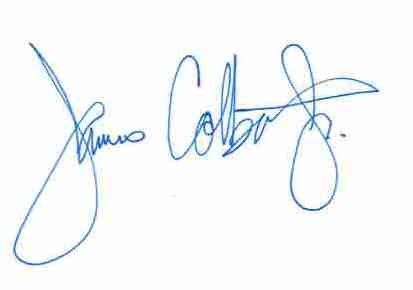 James Colbert Jr.